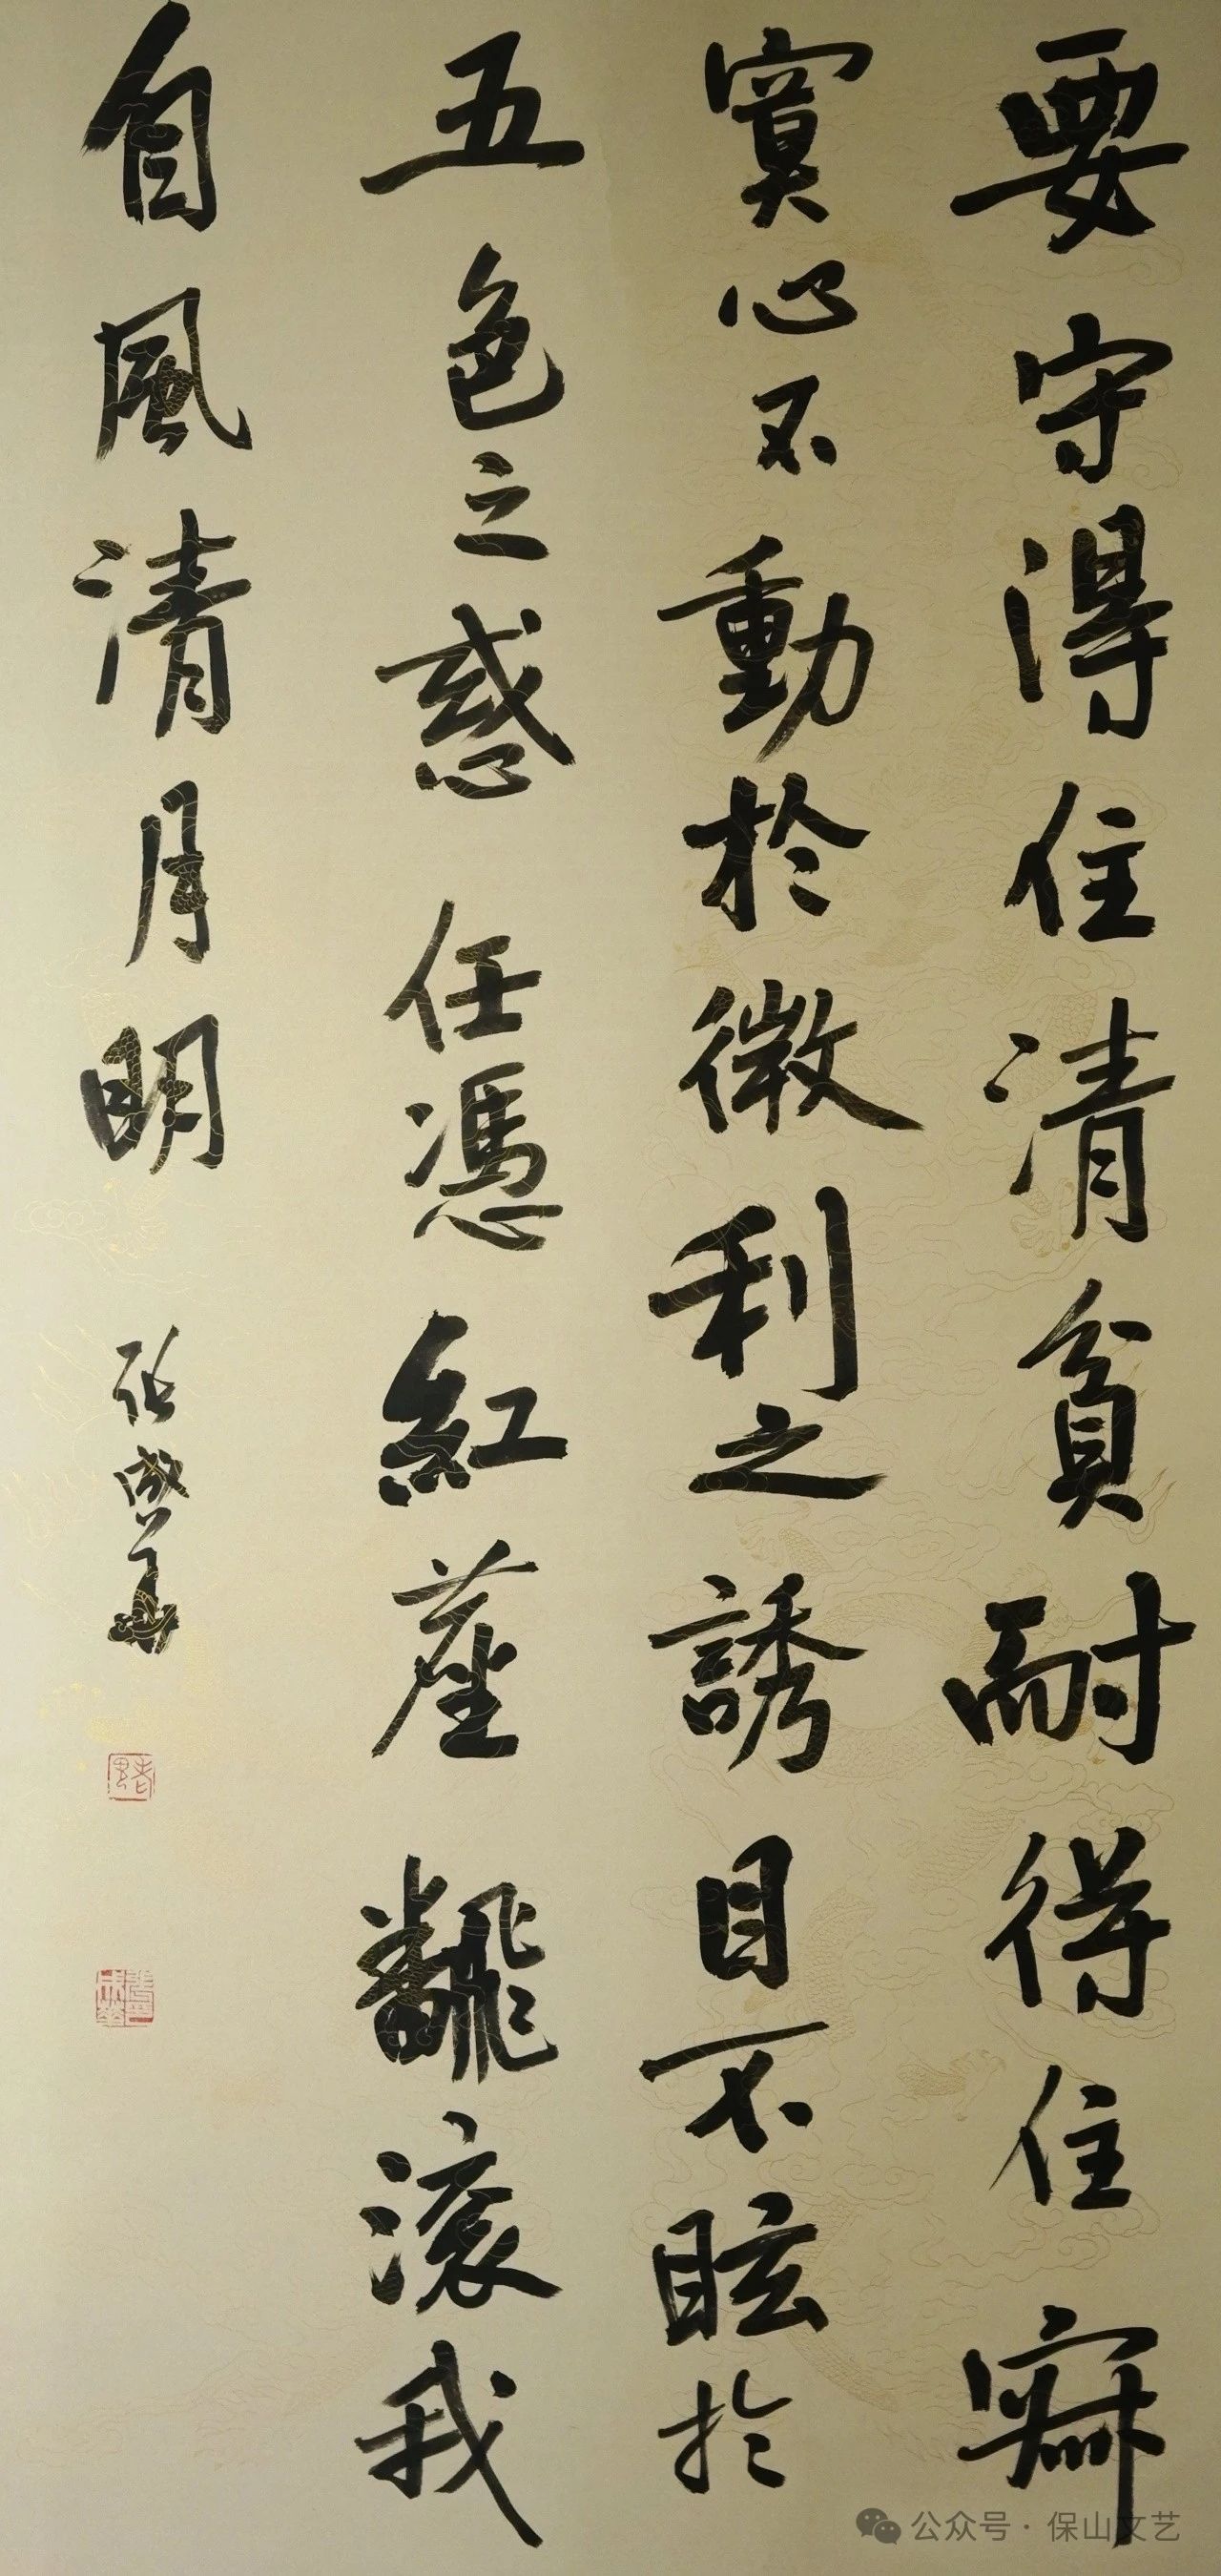 要守得住清貧耐得住寂
寞心不動於微利之誘目不眩於
五色之惑任憑紅塵飜滾我
自風清月明
公众号 · 保山文艺